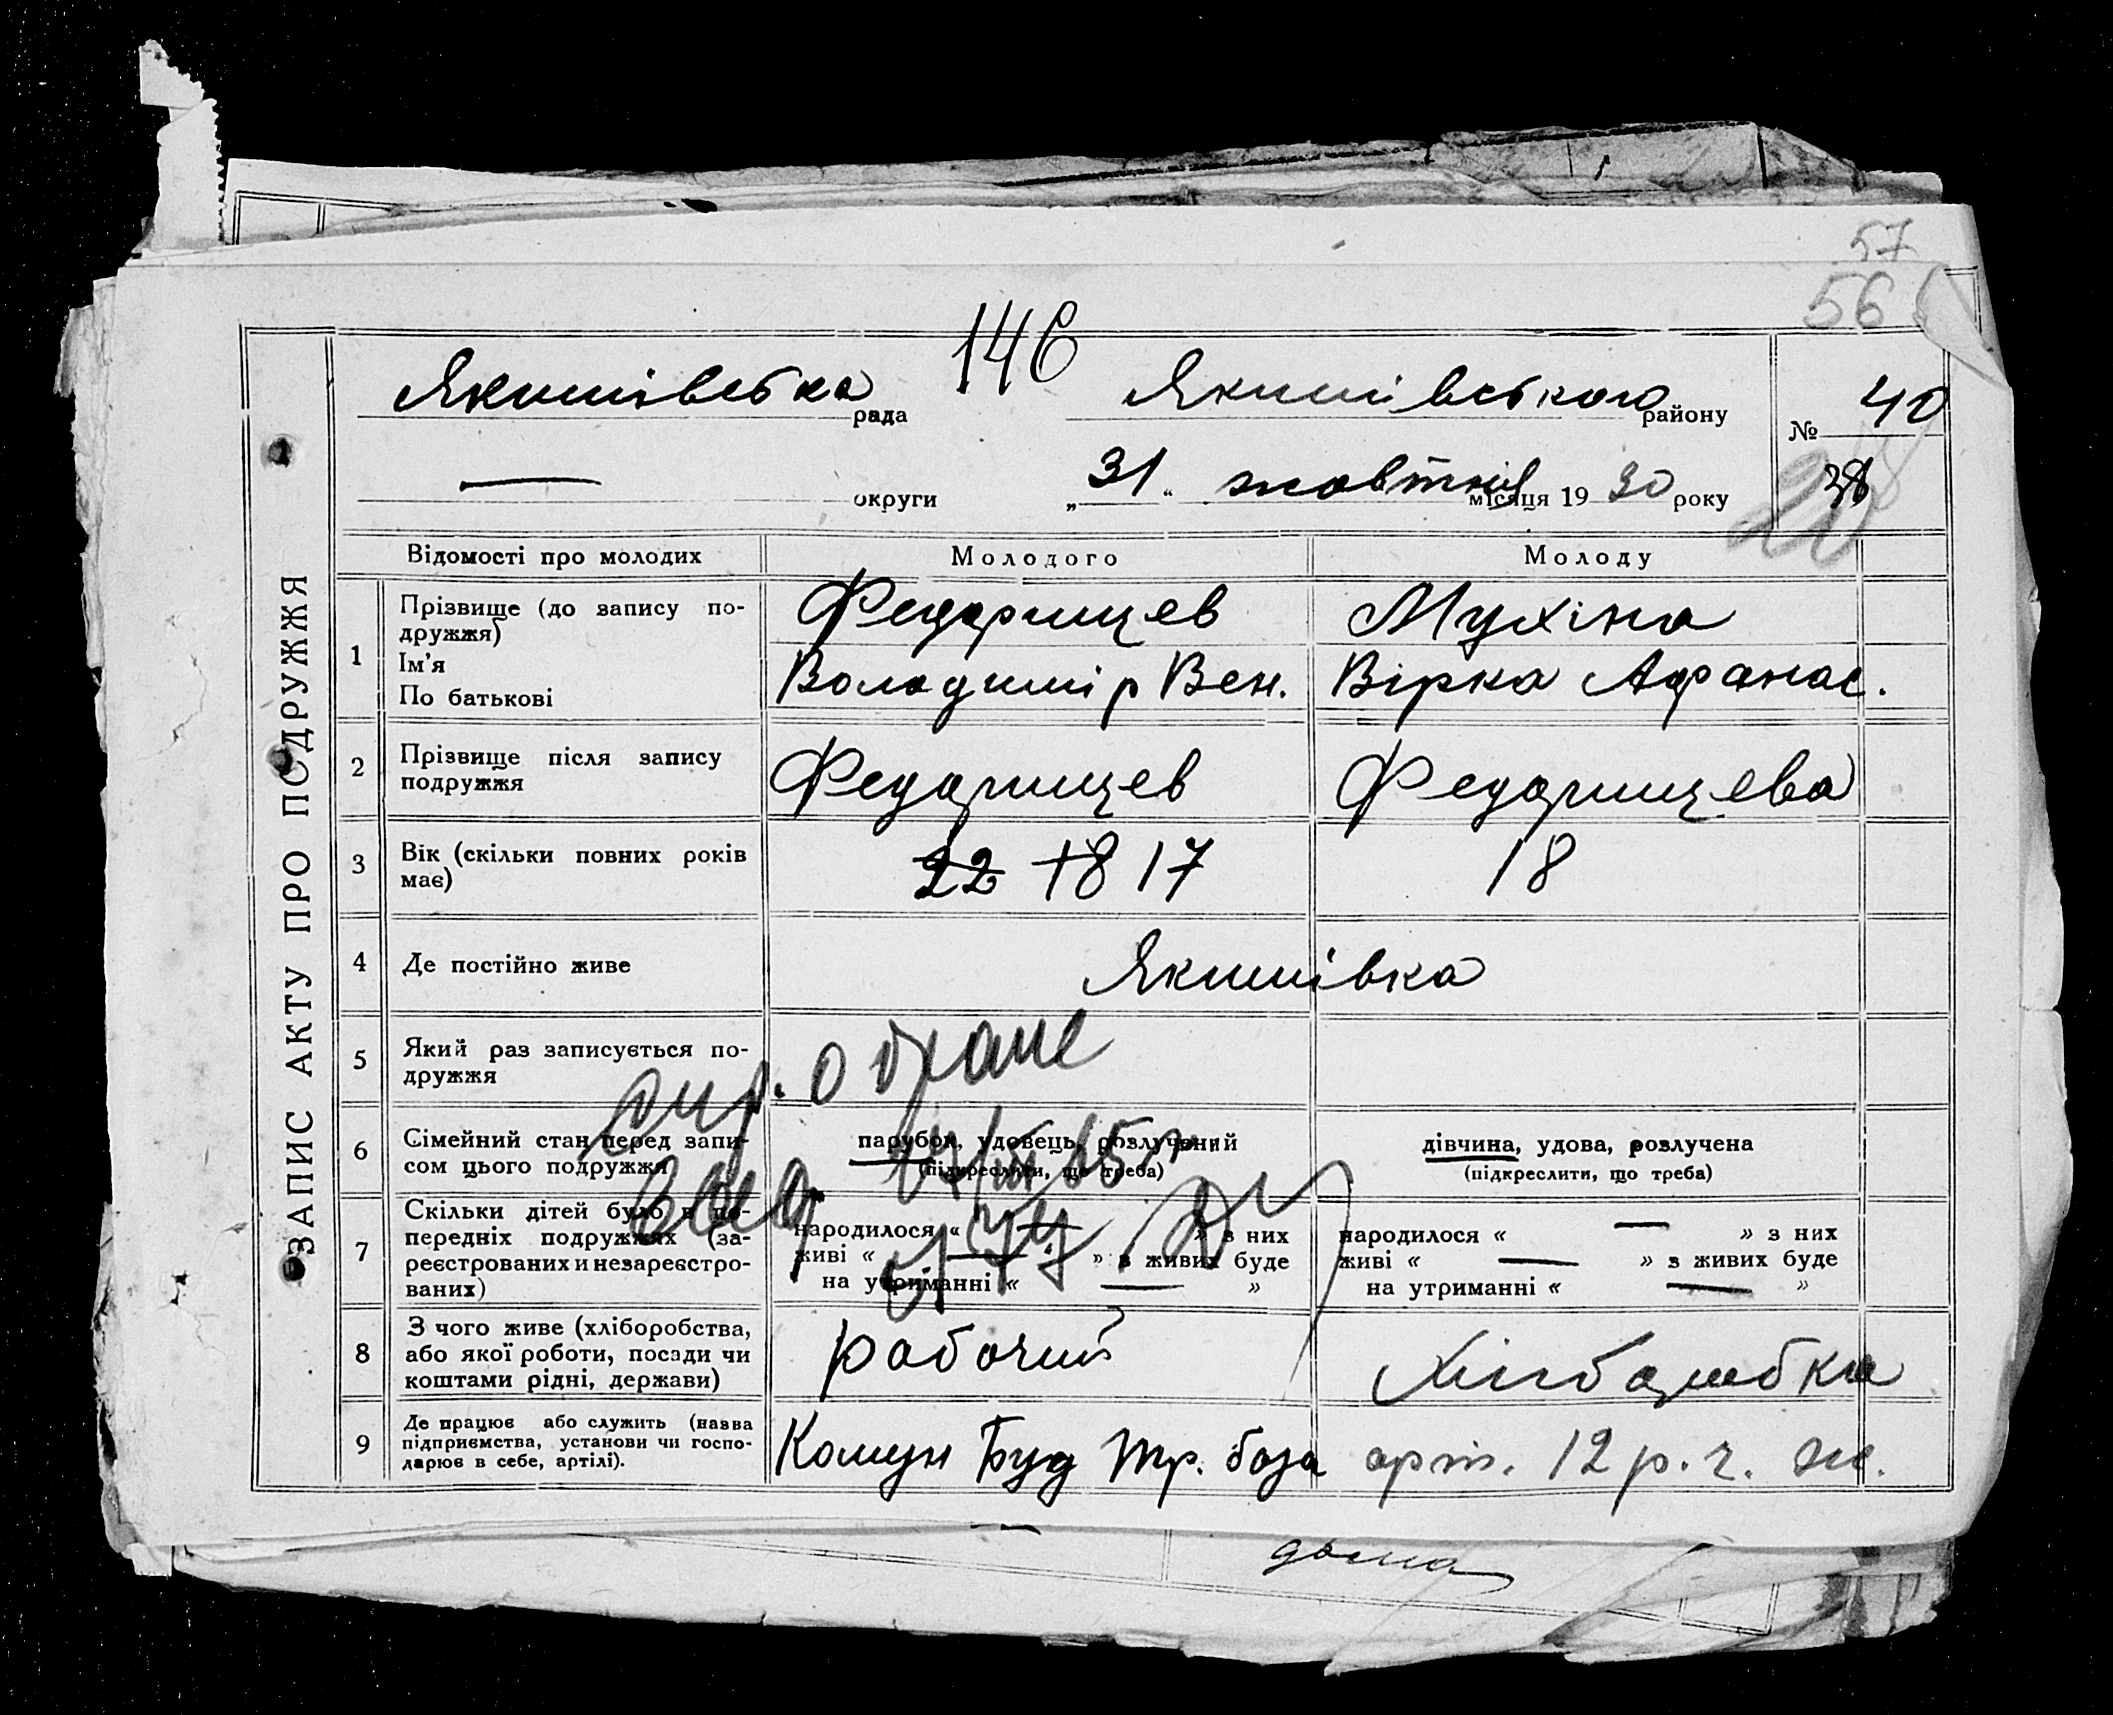 57
56
146
Якимівська рада
Якимівського району
№ 40
округи
„31“ жовтня місяця 1930 року
28
ЗАПИС АКТУ ПРО ПОДРУЖЖЯ
Відомості про молодих
Молодого
Молоду
1
Прізвище (до запису по-
дружжя)
Ім'я
По батькові
Федоринцев
Володимір Вен.
Мухіна
Вірка Афанас.
2
Прізвище після запису
подружжя
Федоринцев
Федоринцева
3
Вік (скільки повних років
має)
22 18 17
18
4
Де постійно живе
Якимівка
5
Який раз записується по-
дружжя
о браке
6
Сімейний стан перед запи-
сом цього подружжя
парубок, удовець, розлучений
(підкреслити, що треба)
дівчина, удова, розлучена
(підкреслити, що треба)
7
Скільки дітей було в по-
передніх подружжях (за-
реєстрованих и незареєстро-
ваних)
народилося « » з них
живі « » з живих буде
на утриманні « »
народилося « — » з них
живі « — » з живих буде
на утриманні « — »
8
З чого живе (хліборобства,
або якої роботи, посади чи
коштами рідні, держави)
рабочий
9
Де працює або служить (назва
підприємства, установи чи госпо-
дарює в себе, артілі).
Комун Буд тр. база
арт. 12 р. г. ж.